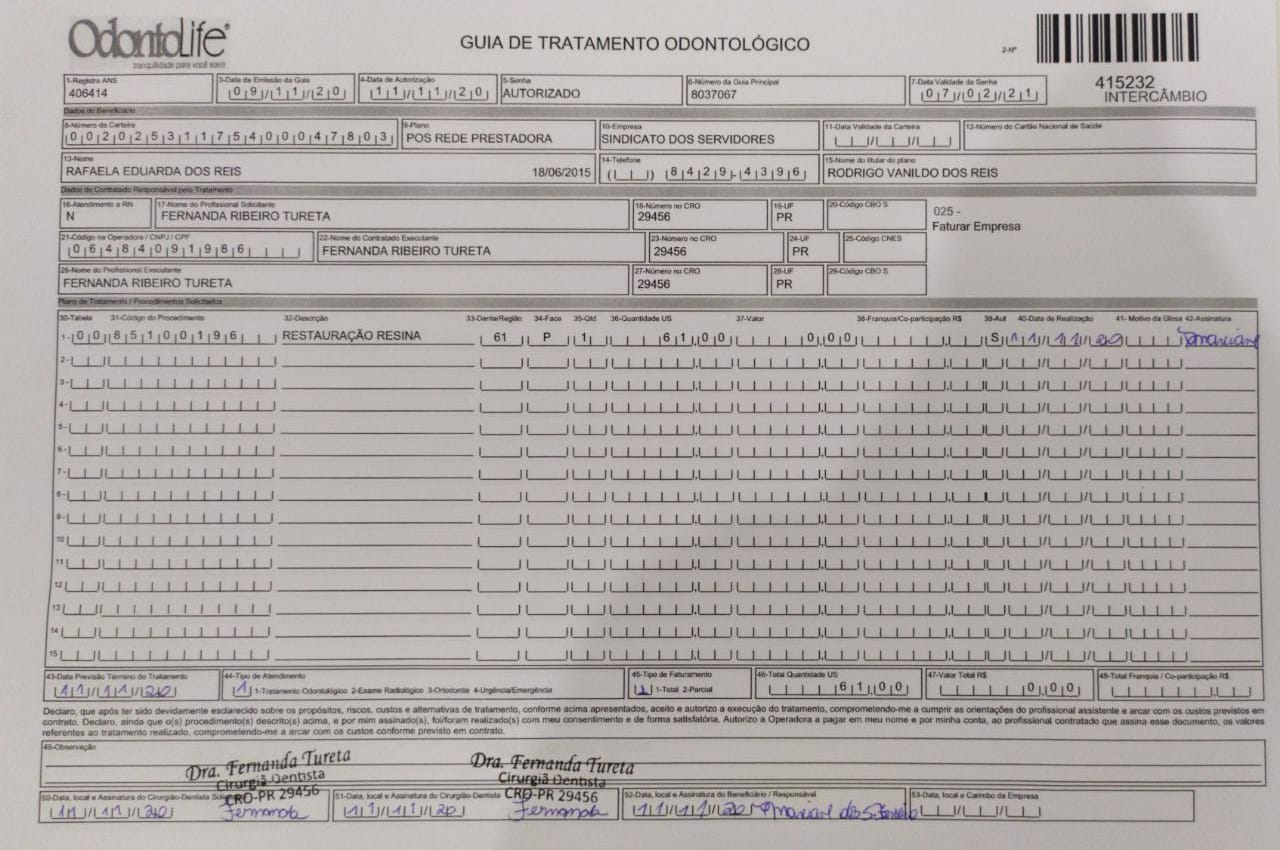 OdontoLife®
tranquilidade para você sorrir
GUIA DE TRATAMENTO ODONTOLÓGICO
2-Nº
415232
INTERCÂMBIO
1-Registro ANS 3-Data de Emissão da Guia 4-Data de Autorização 5-Senha 6-Número da Guia Principal 7-Data Validade da Senha
406414 09/11/20 11/11/20 AUTORIZADO 8037067 07/02/21
Dados do Beneficiário
8-Número da Carteira 9-Plano 10-Empresa 11-Data Validade da Carteira 12-Número do Cartão Nacional de Saúde
00202531175400047803 POS REDE PRESTADORA SINDICATO DOS SERVIDORES
13-Nome 14-Telefone 15-Nome do titular do plano
RAFAELA EDUARDA DOS REIS 18/06/2015 ( ) 8429-4396 RODRIGO VANILDO DOS REIS
Dados do Contratado Responsável pelo Tratamento
16-Atendimento a RN 17-Nome do Profissional Solicitante 18-Número no CRO 19-UF 20-Código CBO S
N FERNANDA RIBEIRO TURETA 29456 PR
025 -
Faturar Empresa
21-Código na Operadora / CNPJ / CPF 22-Nome do Contratado Executante 23-Número no CRO 24-UF 25-Código CNES
06484091986 FERNANDA RIBEIRO TURETA 29456 PR
26-Nome do Profissional Executante 27-Número no CRO 28-UF 29-Código CBO S
FERNANDA RIBEIRO TURETA 29456 PR
Plano de Tratamento / Procedimentos Solicitados
30-Tabela 31-Código do Procedimento 32-Descrição 33-Dente/Região 34-Face 35-Qtd 36-Quantidade US 37-Valor 38-Franquia/Co-participação R$ 39-Aut 40-Data de Realização 41- Motivo da Glosa 42-Assinatura
1- 00 85100196 RESTAURAÇÃO RESINA 61 P 1 61,00 0,00 S 11/11/20 Mariane
2-
3-
4-
5-
6-
7-
8-
9-
10
11
12
13
14
15
43-Data Previsão Término do Tratamento 44-Tipo de Atendimento 45-Tipo de Faturamento 46-Total Quantidade US 47-Valor Total R$ 48-Total Franquia / Co-participação R$
11/11/20 1 1-Tratamento Odontológico 2-Exame Radiológico 3-Ortodontia 4-Urgência/Emergência 1 1-Total 2-Parcial 61,00 0,00
Declaro, que após ter sido devidamente esclarecido sobre os propósitos, riscos, custos e alternativas de tratamento, conforme acima apresentados, aceito e autorizo a execução do tratamento, comprometendo-me a cumprir as orientações do profissional assistente e arcar com os custos previstos em
contrato. Declaro, ainda que o(s) procedimento(s) descrito(s) acima, e por mim assinado(s), foi/foram realizado(s) com meu consentimento e de forma satisfatória. Autorizo a Operadora a pagar em meu nome e por minha conta, ao profissional contratado que assina esse documento, os valores
referentes ao tratamento realizado, comprometendo-me a arcar com os custos conforme previsto em contrato.
49-Observação
Dra. Fernanda Tureta Dra. Fernanda Tureta
Cirurgiã Dentista Cirurgiã Dentista
CRO-PR 29456 CRO-PR 29456
50-Data, local e Assinatura do Cirurgião-Dentista 51-Data, local e Assinatura do Cirurgião-Dentista 52-Data, local e Assinatura do Beneficiário / Responsável 53-Data, local e Carimbo da Empresa
11/11/20 Fernanda 11/11/20 Fernanda 11/11/20 Mariane dos S.